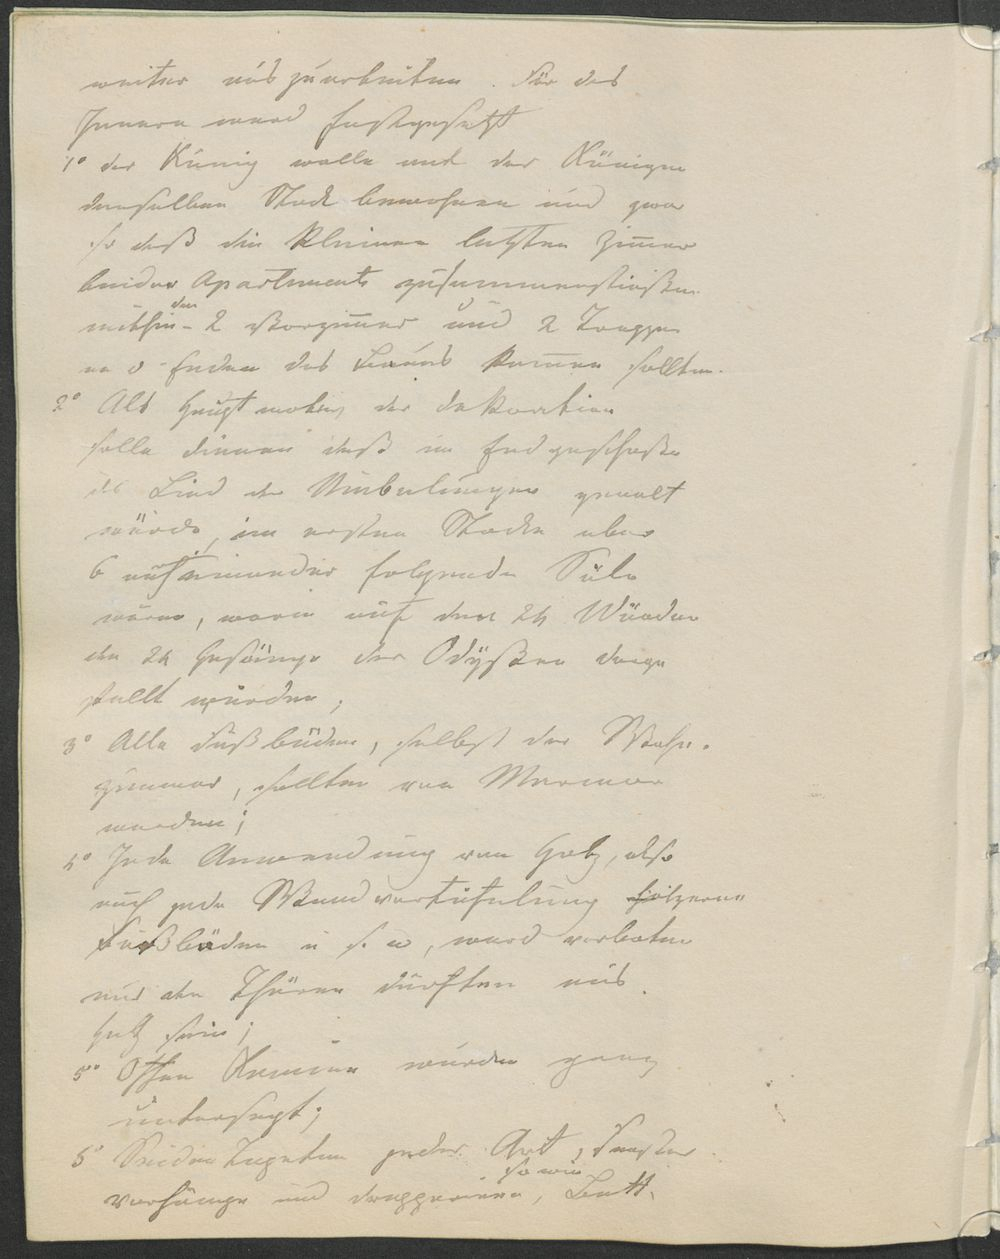 weiter auszuarbeiten. Für das
Innere ward festgesetzt
1° der König wolle und der Königin
denselben Stock bewohnen und zwar
so daß die kleinen letzten Zimmer
beider Apartments zusammenstießen
mithin den 2 Vorzimmer und 2 Treppen
an Enden des Baues kommen sollten.
2° Als Hauptmotiv der Dekoration
solle dienen daß im Erdgeschoße
das Lied der Niebelungen gemalt
würde, im ersten Stocke aber
6 aufeinander folgende Säle
wären, worin auf den 24 Wänden
die 24 Gesänge der Odÿßee darge
stellt würden;
3° Alle Fußböden, selbst der Wohn-
zimmer, sollten von Marmor
werden;
4° Jede Anwendung von Holz, also
auch jede Wandvertäfelung hölzerne
Fußböden u s. w, ward verboten
nur die Thüren dürften aus
Holz sein;
5° Offene Kamine wurden ganz
untersagt;
5° Seidene Tapeten jeder Art, Fenster
vorhänge und Drapperieen, so wie Bett-